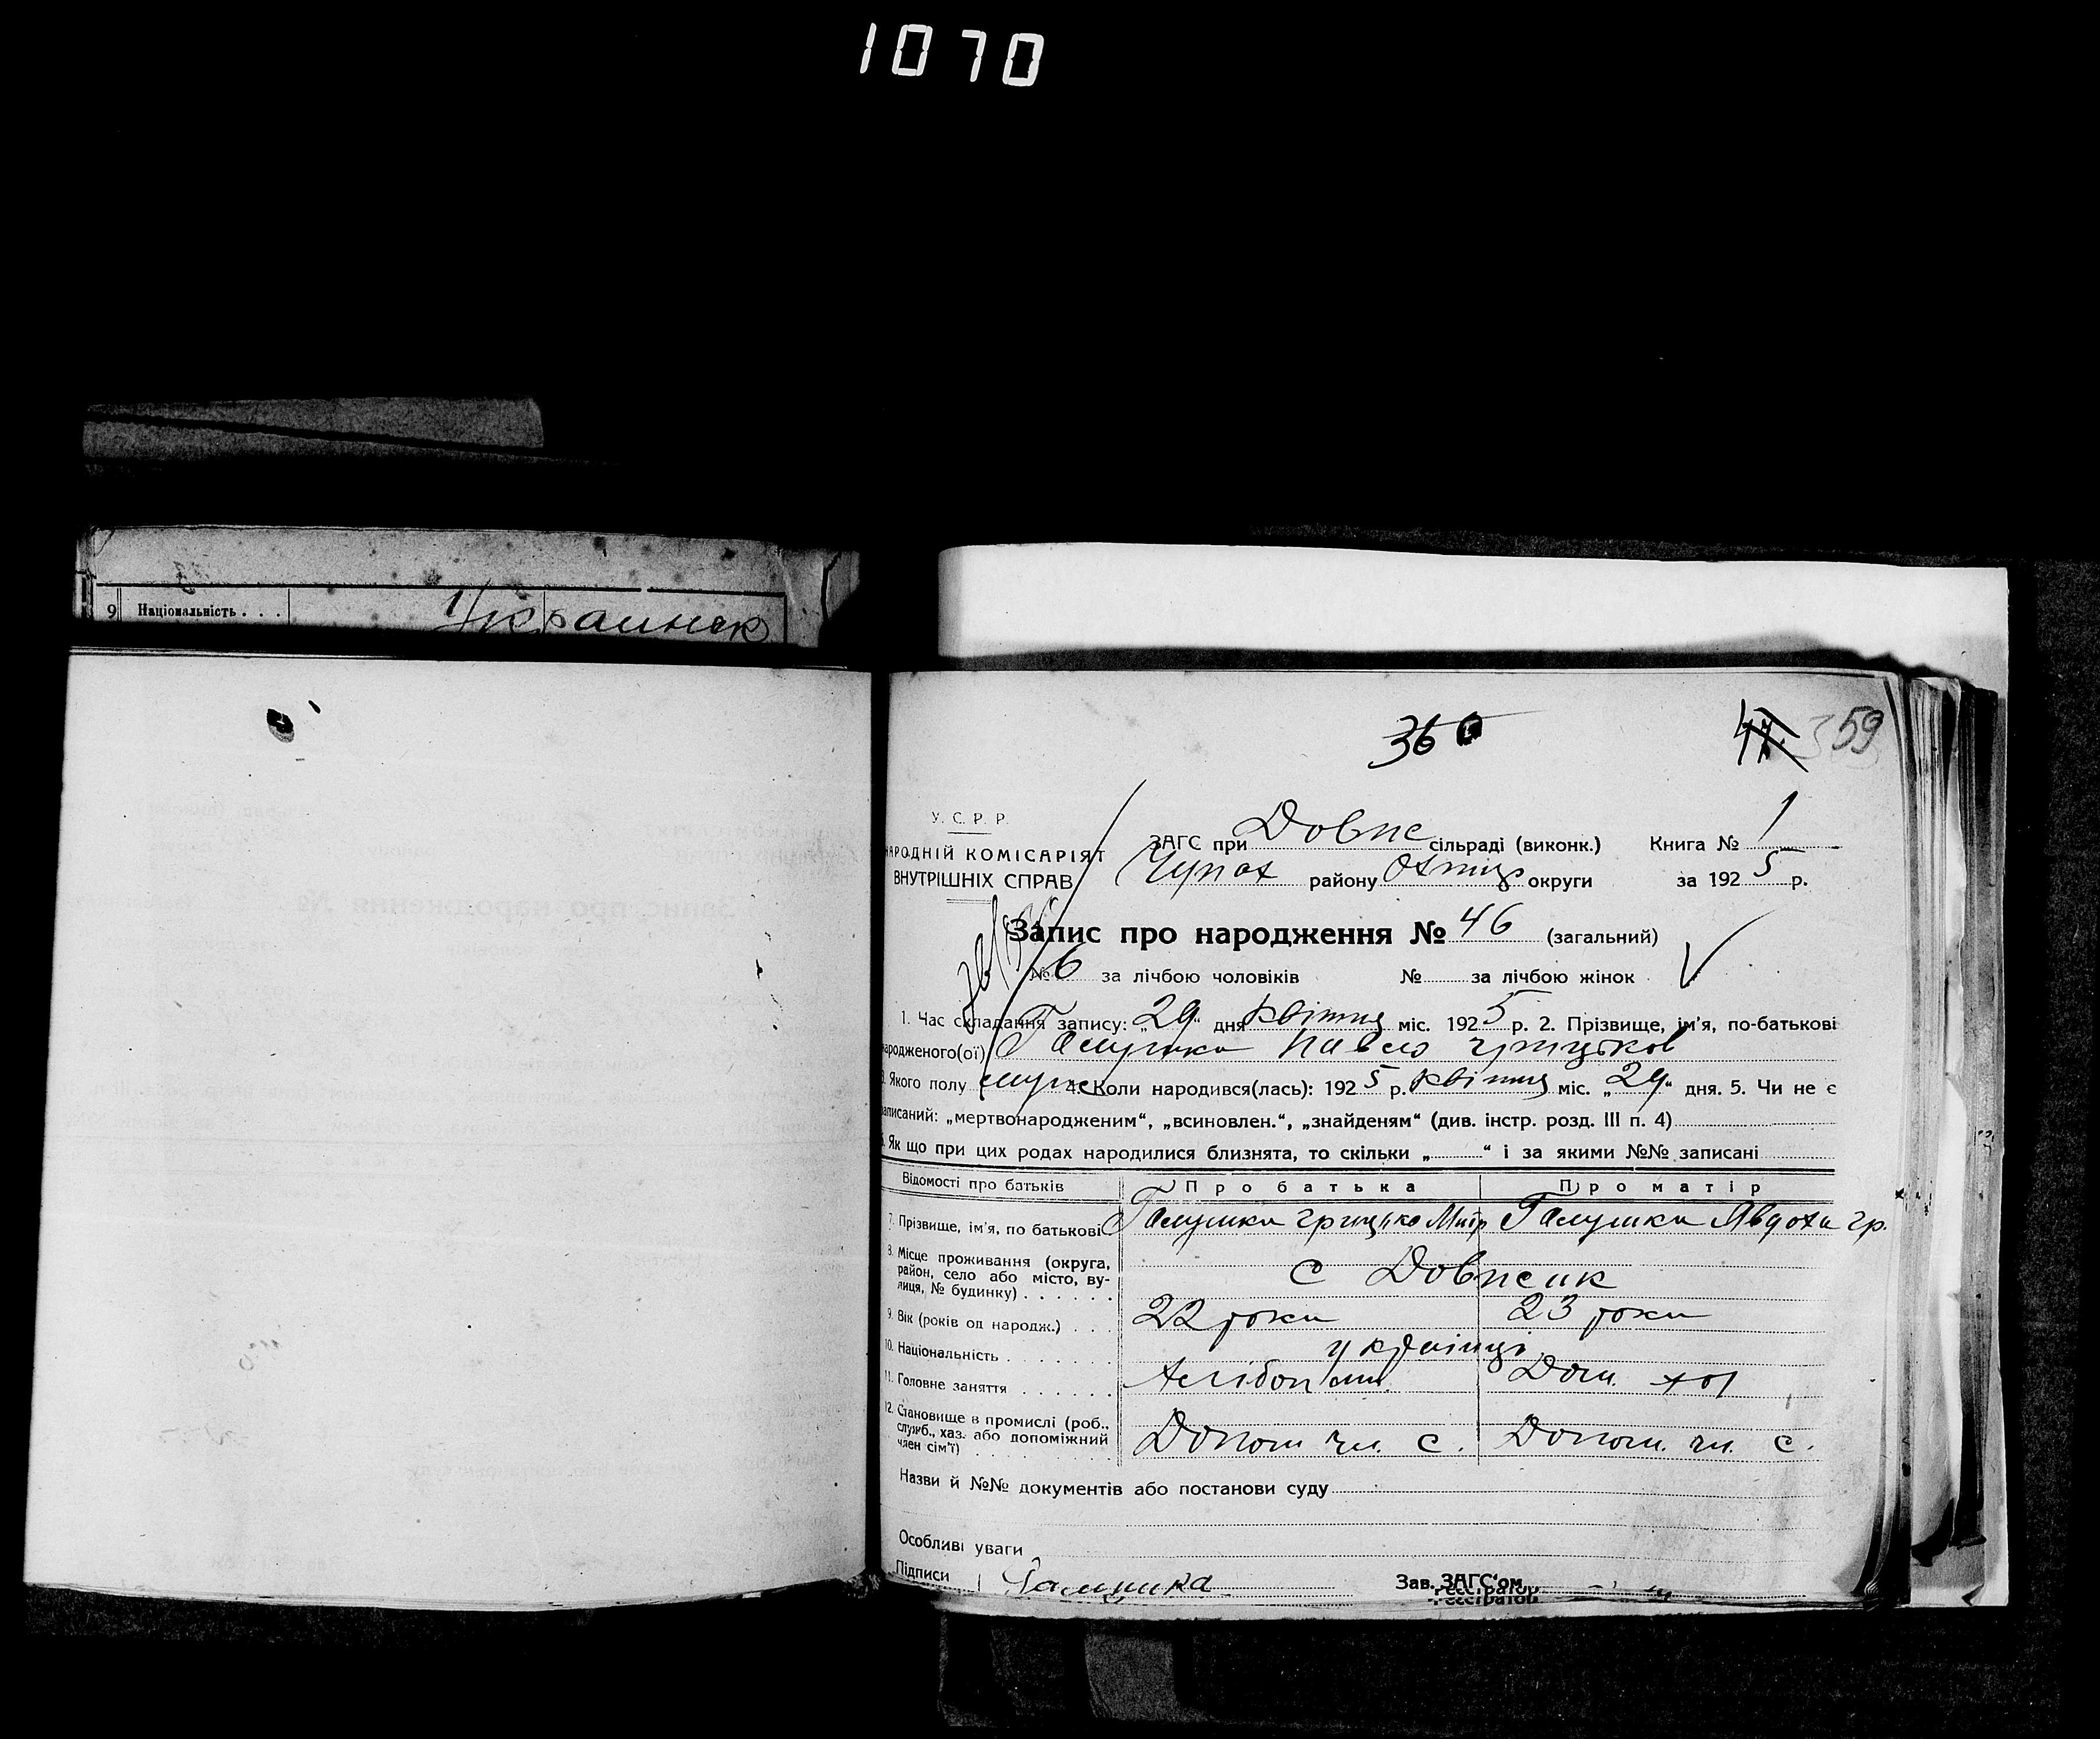 1070
9 Національність . . . Украинск
36
47. 359
У. С. Р. Р.
НАРОДНІЙ КОМІСАРІЯТ
ВНУТРІШНІХ СПРАВ
ЗАГС при Довпс сільраді (виконк.) Книга № 1
Чупах району Охтир округи за 192 5 р.
Запис про народження № 46 (загальний)
№ 6 за лічбою чоловіків № за лічбою жінок
1. Час складання запису: „29“ дня квітня міс. 192 5 р. 2. Прізвище, ім'я, по-батькові
народженого(ої) Галушка Павло Грицьков
3. Якого полу муже 4. Коли народився(лась): 192 5 р. квітня міс. „29“ дня. 5. Чи не є
записаний: „мертвонародженим“, „всиновлен.“, „знайденям“ (див. інстр. розд. III п. 4)
6. Як що при цих родах народилися близнята, то скільки „ “ і за якими №№ записані
Відомості про батьків Про батька Про матір
7. Прізвище, ім'я, по батькові Галушка Грицько Галушка Явдоха Гр.
8. Місце проживання (округа, район, село або місто, вулиця, № будинку) . . . . . . с Довпсик
9. Вік (років од народж.) . . . 22 роки 23 роки
10. Національність . . . . . . . українці
11. Головне заняття . . . . . . Хлібоп Дом. хоз
12. Становище в промислі (роб., служб., хаз. або допоміжний член сім'ї) . . . Допом чл. с. Допом. чл. с.
Назви й №№ документів або постанови суду
Особливі уваги
Підписи Галушка Зав. ЗАГС'ом
Реєстратор